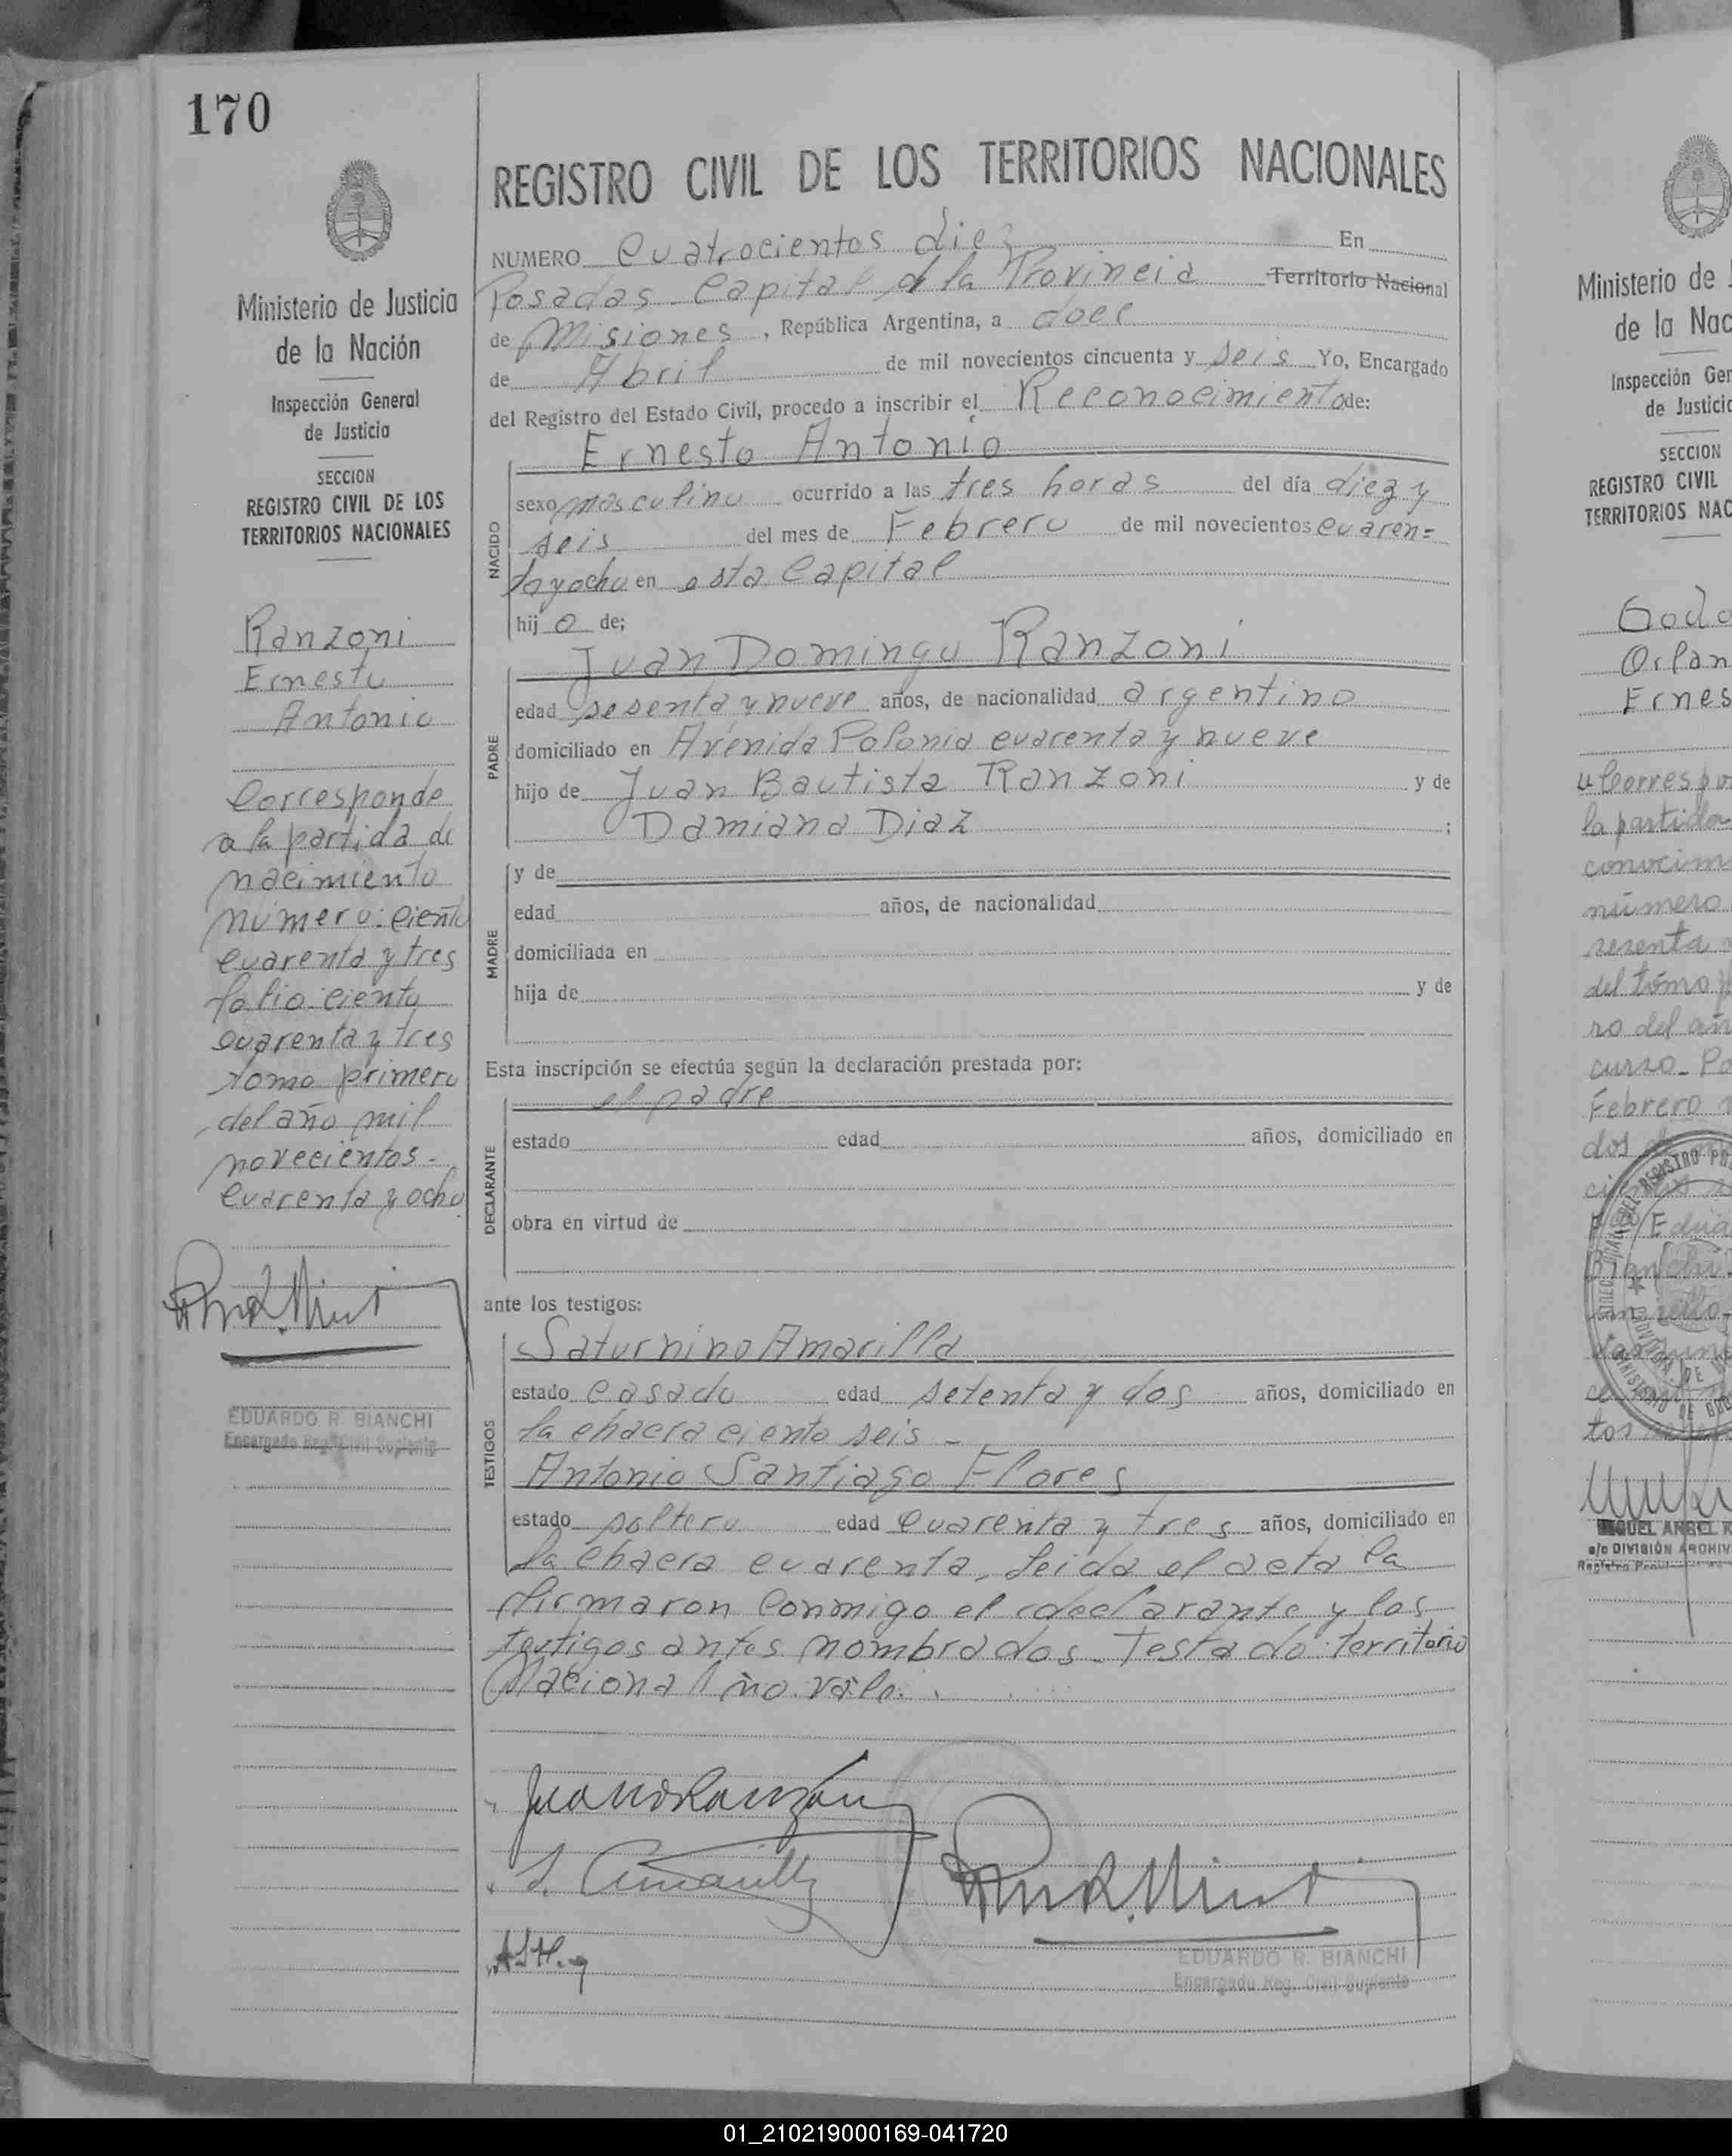 170
Ministerio de Justicia
de la Nación
Inspección General
de Justicia
SECCION
REGISTRO CIVIL DE LOS
TERRITORIOS NACIONALES
Ranzoni
Ernesto
Antonio
Corresponde
a la partida de
nacimiento
número: ciento
cuarenta y tres
folio ciento
cuarenta y tres
tomo primero
del año mil
novecientos-
cuarenta y ocho
EDUARDO R. BIANCHI
Encargado Reg. Civil Suplente
REGISTRO CIVIL DE LOS TERRITORIOS NACIONALES
NUMERO Cuatrocientos diez En
Posadas Capital d la Provincia Territorio Nacional
de Misiones, República Argentina, a doce
de Abril de mil novecientos cincuenta y seis Yo, Encargado
del Registro del Estado Civil, procedo a inscribir el Reconocimiento de:
NACIDO
Ernesto Antonio
sexo masculino ocurrido a las tres horas del día diez y
seis del mes de Febrero de mil novecientos cuaren=
ta y ocho en esta Capital
hijo de;
PADRE
Juan Domingo Ranzoni
edad sesenta y nueve años, de nacionalidad argentino
domiciliado en Avenida Polonia cuarenta y nueve
hijo de Juan Bautista Ranzoni y de
Damiana Diaz ;
MADRE
y de
edad años, de nacionalidad
domiciliada en
hija de y de
Esta inscripción se efectúa según la declaración prestada por:
DECLARANTE
el padre
estado edad años, domiciliado en
obra en virtud de
ante los testigos:
TESTIGOS
Saturnino Amarilla
estado casado edad setenta y dos años, domiciliado en
la chacra ciento seis -
Antonio Santiago Flores
estado soltero edad cuarenta y tres años, domiciliado en
la chacra cuarenta, leida el acta la
firmaron conmigo el declarante y los
testigos antes nombrados. Testado: territorio
Nacional: no vale.
S. Amarilla
EDUARDO R. BIANCHI
Encargado Reg. Civil Suplente
Ministerio de J
de la Nac
Inspección Gen
de Justicia
SECCION
REGISTRO CIVIL
TERRITORIOS NAC
Godo
Orlan
Ernes
Correspon
la partida
conocimi
número
sesenta
del tómo p
ro del añ
curso. Po
Febrero
dos
MIGUEL ANGEL
a/c DIVISIÓN ARCHIV
01_210219000169-041720